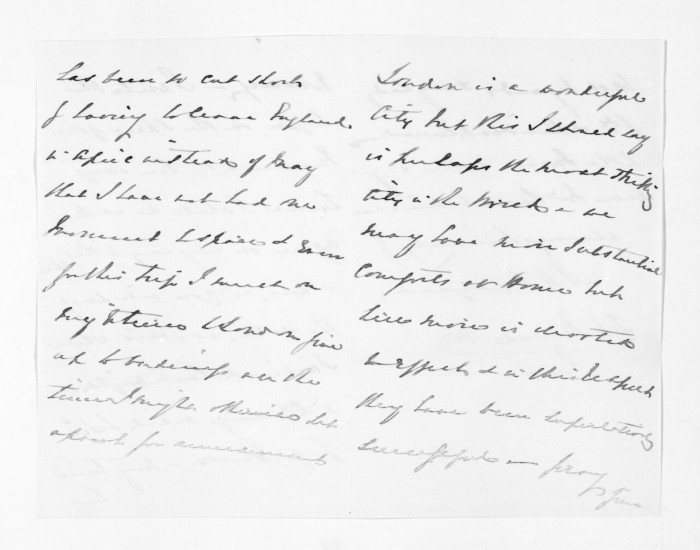 has been so cut short
of having to leave England
in April instead of May
that I have not had one
moment to spare & even
for this trip I must on
my return to London give
up to business all the
time I might otherwise set
apart for amusement
London is a wonderful
City but this I should say
is perhaps the most striking
City in the World – we
may have more substantial
Comforts at Home but
here more is devoted
to Effect & in this respect
they have been superlatively
successful – pray
give